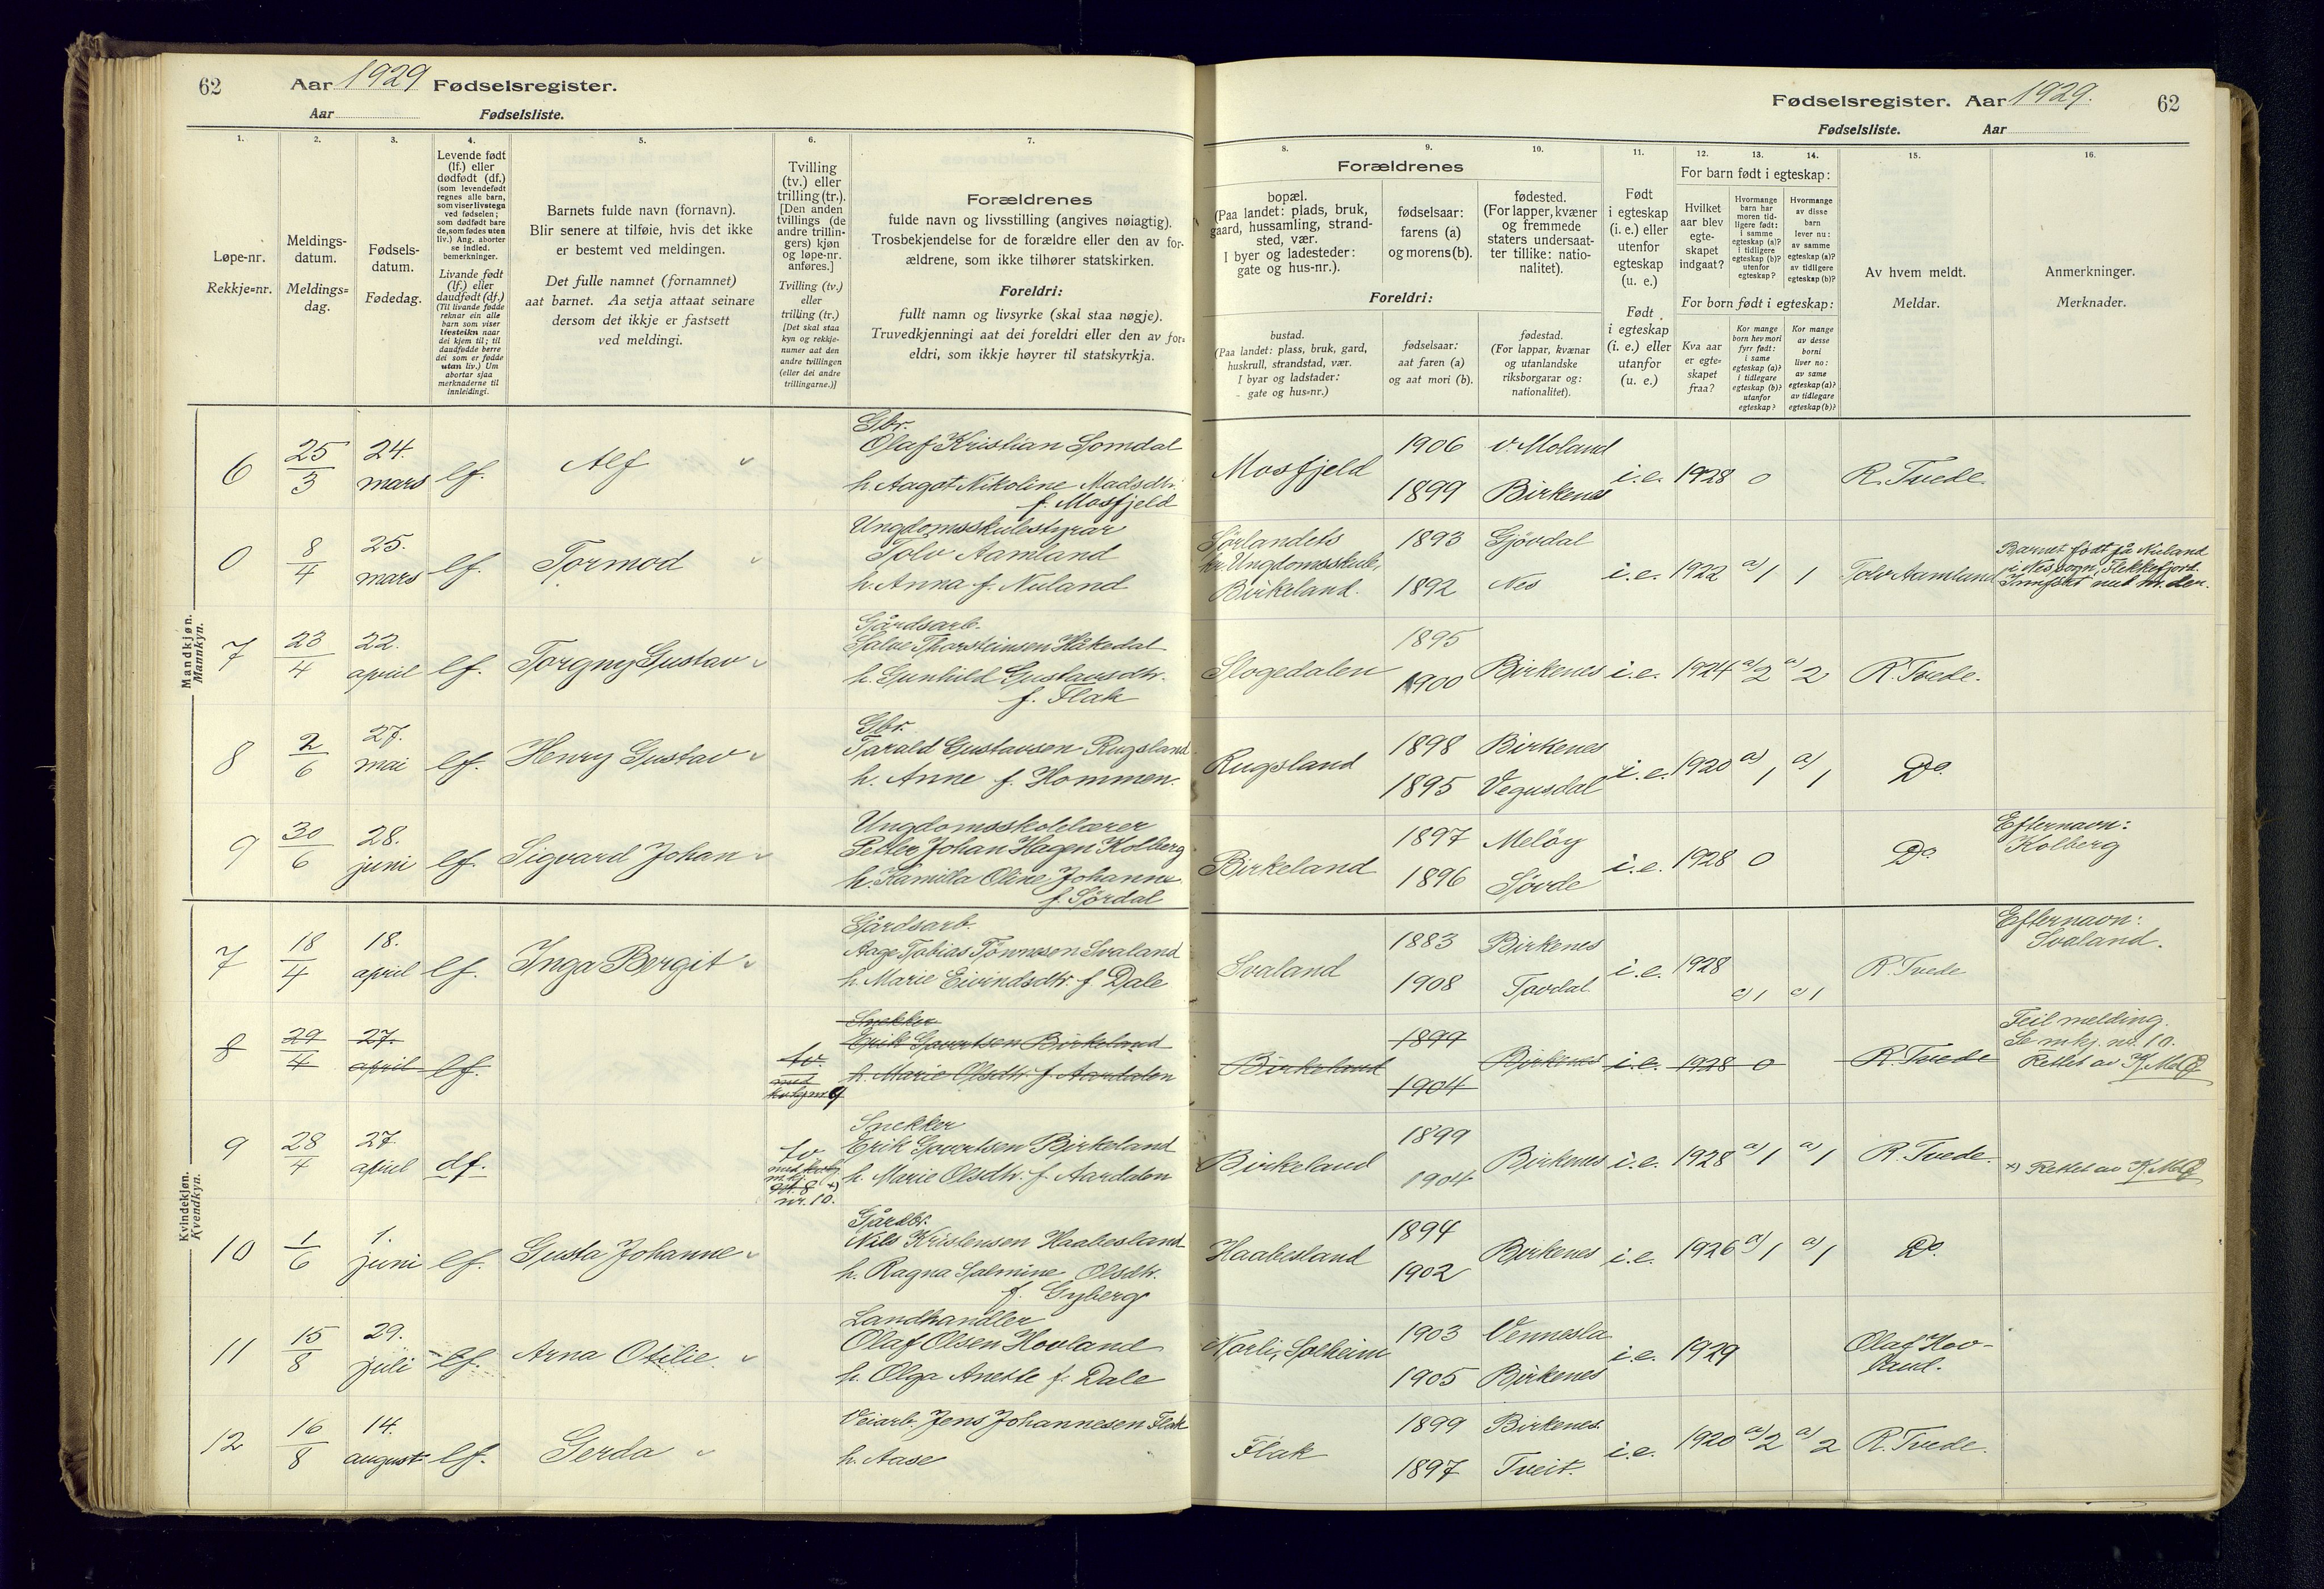 62
Aar 1929 Fødselsregister.
Aar Fødselsliste.
Fødselsregister. Aar 1929.
62
Fødselsliste. Aar
1.
Løpe-nr.
Rekkje=nr.
2.
Meldings-
datum.
Meldings=
dag.
3.
Fødsels-
datum.
Fødedag.
4.
Levende født
(lf.) eller
dødfødt (df.)
(som levendefødt
regnes alle barn,
som viser livstegn
ved fødselen;
som dødfødt bare
de, som fødes uten
liv.) Ang. aborter
se indled.
bemerkninger.
Livande født
(lf.) eller
daudfødt (df.)
(Til livande fødde
reknar ein alle
barn som viser
livsteikn naar
dei kjem til; til
daudfødde berre
dei som er fødde
utan liv.) Um
abortar sjaa
merknaderne til
innleidingi.
5.
Barnets fulde navn (fornavn).
Blir senere at tilføie, hvis det ikke
er bestemt ved meldingen.
Det fulle namnet (fornamnet)
aat barnet. Aa setja attaat seinare
dersom det ikkje er fastsett
ved meldingi.
6.
Tvilling
(tv.) eller
trilling (tr.).
[Den anden
tvillings (de
andre trillin-
gers) kjøn
og løpe-nr.
anføres.]
Tvilling (tv.)
eller
trilling (tr.)
[Det skal staa
kyn og rekkje-
numer aat den
andre tvillingen
(eller dei andre
trillingarne.)]
7.
Forældrenes
fulde navn og livsstilling (angives nøiagtig).
Trosbekjendelse for de forældre eller den av for-
ældrene, som ikke tilhører statskirken.
Foreldri:
fullt namn og livsyrke (skal staa nøgje).
Truvedkjenningi aat dei foreldri eller den av for=
eldri, som ikkje høyrer til statskyrkja.
8.
Forældrenes
bopæl.
(Paa landet: plads, bruk,
gaard, hussamling, strand-
sted, vær.
I byer og ladesteder:
gate og hus-nr.).
Foreldri:
bustad.
(Paa landet: plass, bruk, gard,
huskrull, strandstad, vær.
I byar og ladstader:
gate og hus=nr.)
9.
fødselsaar:
farens (a)
og morens (b).
fødselsaar:
aat faren (a)
og aat mori (b).
10.
fødested.
(For lapper, kvæner
og fremmede
staters undersaat-
ter tillike: natio-
nalitet).
fødestad.
(For lappar, kvænar
og utanlandske
riksborgarar og:
nationalitet).
11.
Født
i egteskap
(i. e.) eller
utenfor
egteskap
(u. e.)
Født
i egteskap
(i. e.) eller
utanfor
egteskap
(u. e.)
12.
For barn født i egteskap:
Hvilket
aar blev
egte-
skapet
indgaat?
For born født i egteskap:
Kva aar
er egte=
skapet
fraa?
13.
Hvormange
barn har
moren tid-
ligere født:
i samme
egteskap (a)?
i tidligere
egteskap (b)?
utenfor
egteskap?
Kor mange
born hev mori
fyrr født:
i same
egteskap (a)?
i tidlegare
egteskap (b)?
utanfor
egteskap?
14.
Hvormange
av disse
barn
lever nu:
av samme
egteskap (a)?
av tidligere
egteskap (b)?
Kor mange
av desse
borni
liver no:
av same
egteskap (a)?
av tidlegare
egteskap (b)?
15.
Av hvem meldt.
Meldar.
16.
Anmerkninger.
Merknader.
Mandkjøn.
Mannkyn.
6 25/3 24. mars lf. Alf
Gbr.
Olaf Kristian Somdal
h. Aagot Nikoline Madsdtr.
f. Mosfjeld
Mosfjeld 1906 1899 v. Moland Birkenes i.e. 1928 0 R. Tvede.
0 8/4 25. mars lf. Tormod
Ungdomsskulestyrar
Tolv Aamland
h. Anna f. Nuland
Sørlandets
kr. Ungdomsskule,
Birkeland. 1893 1892 Gjøvdal Nes i.e. 1922 a/1 1 Tolv Aamland
Barnet født på Nuland
i Nes sogn, Flekkefjord.
Innført
7 23/4 22. april lf. Torgny Gustav
Gårdsarb.
Salve Thorsteinsen Håkedal
h. Gunhild Gustavsdtr.
f. Flak
Slogedalen 1895 1900 Birkenes i.e. 1924 a/2 a/2 R. Tvede.
8 2/6 27. mai lf. Henry Gustav
Gbr.
Tarald Gustavsen Rugsland
h. Anne f. Hommen.
Rugsland 1898 1895 Birkenes Vegusdal i.e. 1920 a/1 a/1 Do.
9 30/6 28. juni lf. Sigvard Johan
Ungdomsskolelærer
Petter Johan Hagen Kolberg
h. Kamilla Oline Johanne
f. Sørdal
Birkeland 1897 1896 Meløy Sjøvde i.e. 1928 0 Do.
Efternavn:
Kolberg
Kvindekjøn.
Kvendkyn.
7 18/4 18. april lf. Inga Bergit
Gårdsarb.
Aage Tobias Tønnesen Svaland
h. Marie Eivindsdtr. f. Dale
Svaland 1883 1908 Birkenes Tovdal. i.e. 1928 c/1 c/1 R. Tvede
Efternavn:
Svaland.
8 29/4 27. april lf. tv. med
Snekker
Erik Govertsen Birkeland
h. Marie Olsdtr. f. Aardalen
Birkeland 1899 1904 Birkenes i.e. 1928 0 R. Tvede
Feil melding.
Se m.kj. nr. 10.
Rettet av
9 28/4 27. april df. tv
med
m.kj.
nr. 10.
Snekker
Erik Govertsen Birkeland
h. Marie Olsdtr. f. Aardalen
Birkeland 1899 1904 Birkenes i.e. 1928 a/1 a/1 R. Tvede.
x) Rettet av
10 1/6 1. juni lf. Gusta Johanne
Gårdbr.
Nils Kristensen Haabesland
h. Ragna Salmine Olsdtr.
f. Gyberg
Haabesland 1894 1902 Birkenes i.e. 1926 a/1 a/1 Do.
11 15/8 29. juli lf. Arna Otilie.
Landhandler
Olaf Olsen Hovland
h. Olga Anette f. Dale
Norli, Solheim 1903 1905 Vennesla Birkenes i.e. 1929
Olaf Hov-
land.
12 16/8 14. august lf. Gerda
Veiarb. Jens Johannesen Flak
h. Aase
Flak 1899 1897 Birkenes. Tveit. i.e. 1920 a/2 a/2 R. Tvede.